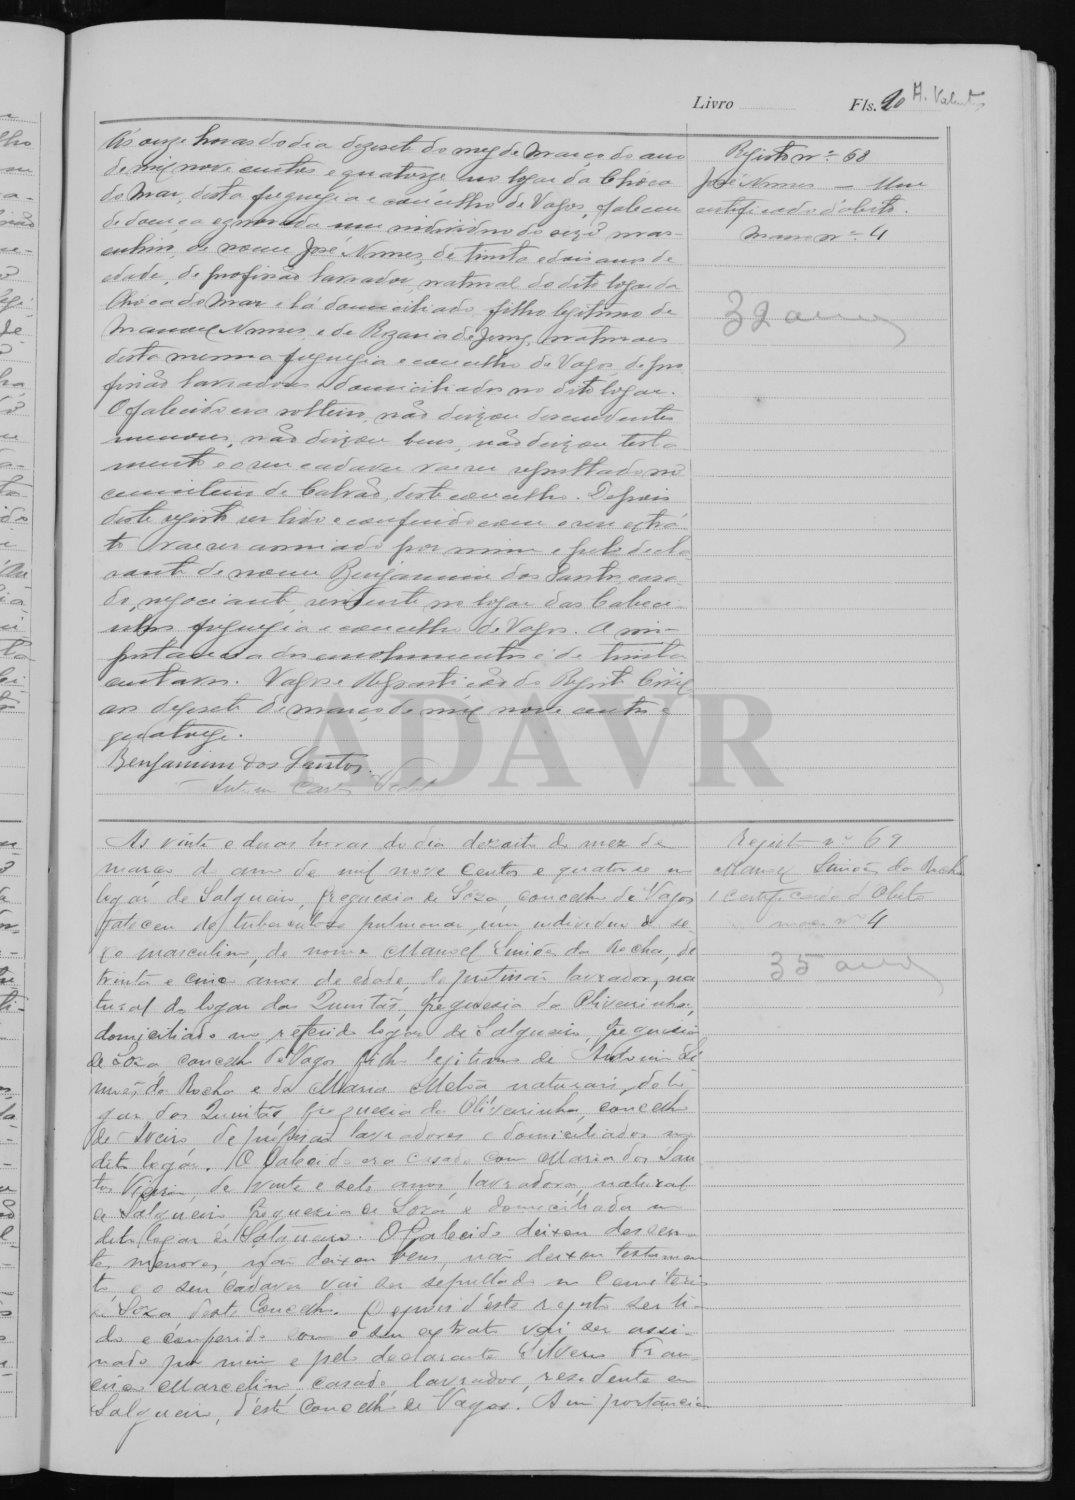 Livro Fls. 20 A. Valente
Ás onze horas do dia dezasete do mez de Março do ano
de mil nove centos e quatorze no logar da Chóca
do Mar, desta freguezia e concelho de Vagos, faleceu
de doença ignorada um individuo do sexo mas-
culino, de nome José Nunes, de trinta e dois anos de
edade, de profissão lavrador, natural do dito logar da
Chóca do Mar e lá domiciliado, filho legitimo de
Manuel Nunes e de Rozaria de Jesus, naturaes
desta mesma freguezia e concelho de Vagos, de pro
fissão lavradores e domiciliados no dito logar.
O falecido era solteiro, não deixou descendentes
menores, não deixou bens, não deixou testa
mento e o seu cadaver vae ser sepultado no
cemiterio de Calvão, deste concelho. Depois
deste registo ser lido e conferido com o seu extrá-
to vae ser assinado por mim e pelo decla
rante de nome Benjamim dos Santos, casa
do, negociante, residente no logar das Cabeci-
nhas freguezia e concelho de Vagos. A im-
portancia dos emolumentos é de trinta
centavos. Vagos e Repartição do Registo Civil
aos dezasete de março de mil nove centos e
quatorze.
Benjamim dos Santos.
Registo nº 68
José Nunes — Um
certificado d'obito.
maço nº 4
32 anos
ADAVR
As vinte e duas horas do dia dezoito do mez de
março do ano de mil nove centos e quatorze no
logar de Salgueiro, freguesia de Sôza, concelho de Vagos
faleceu de tuberculose pulmonar, um individuo do se-
xo masculino, de nome Manoel Simões da Rocha, de
trinta e cinco anos de edade, de profissão lavrador, na
tural do logar das Quintãs, freguesia da Oliveirinha,
domiciliado no referido logar de Salgueiro, freguesia
de Sôza, concelho de Vagos filho legitimo de Antonio Si
mões da Rocha e da Maria naturais do lo
gar das Quintãs freguesia da Oliveirinha, concelho
de Aveiro de profissão lavradores e domiciliados no
dito logar. O falecido era casado com Maria dos San
tos Vieira, de vinte e sete anos, lavradora, natural
de Salgueiro freguezia de Sôza e domiciliada no
dito logar de Salgueiro. O falecido deixou descen-
tes menores, não deixou bens, não deixou testamen
to, e o seu cadaver vai ser sepultado no Cemiterio
de Sôza, deste Concelho. Depois d'este registo ser li-
do e conferido com o seu extrato vai ser assi-
nado por mim e pelo declarante Fran-
cisco Marcelino, casado, lavrador, residente em
Salgueiro, d'este Concelho de Vagos. A importancia
Registo nº 69
Manoel Simões da Rocha
1 certificado d'Obito
maço nº 4
35 anos